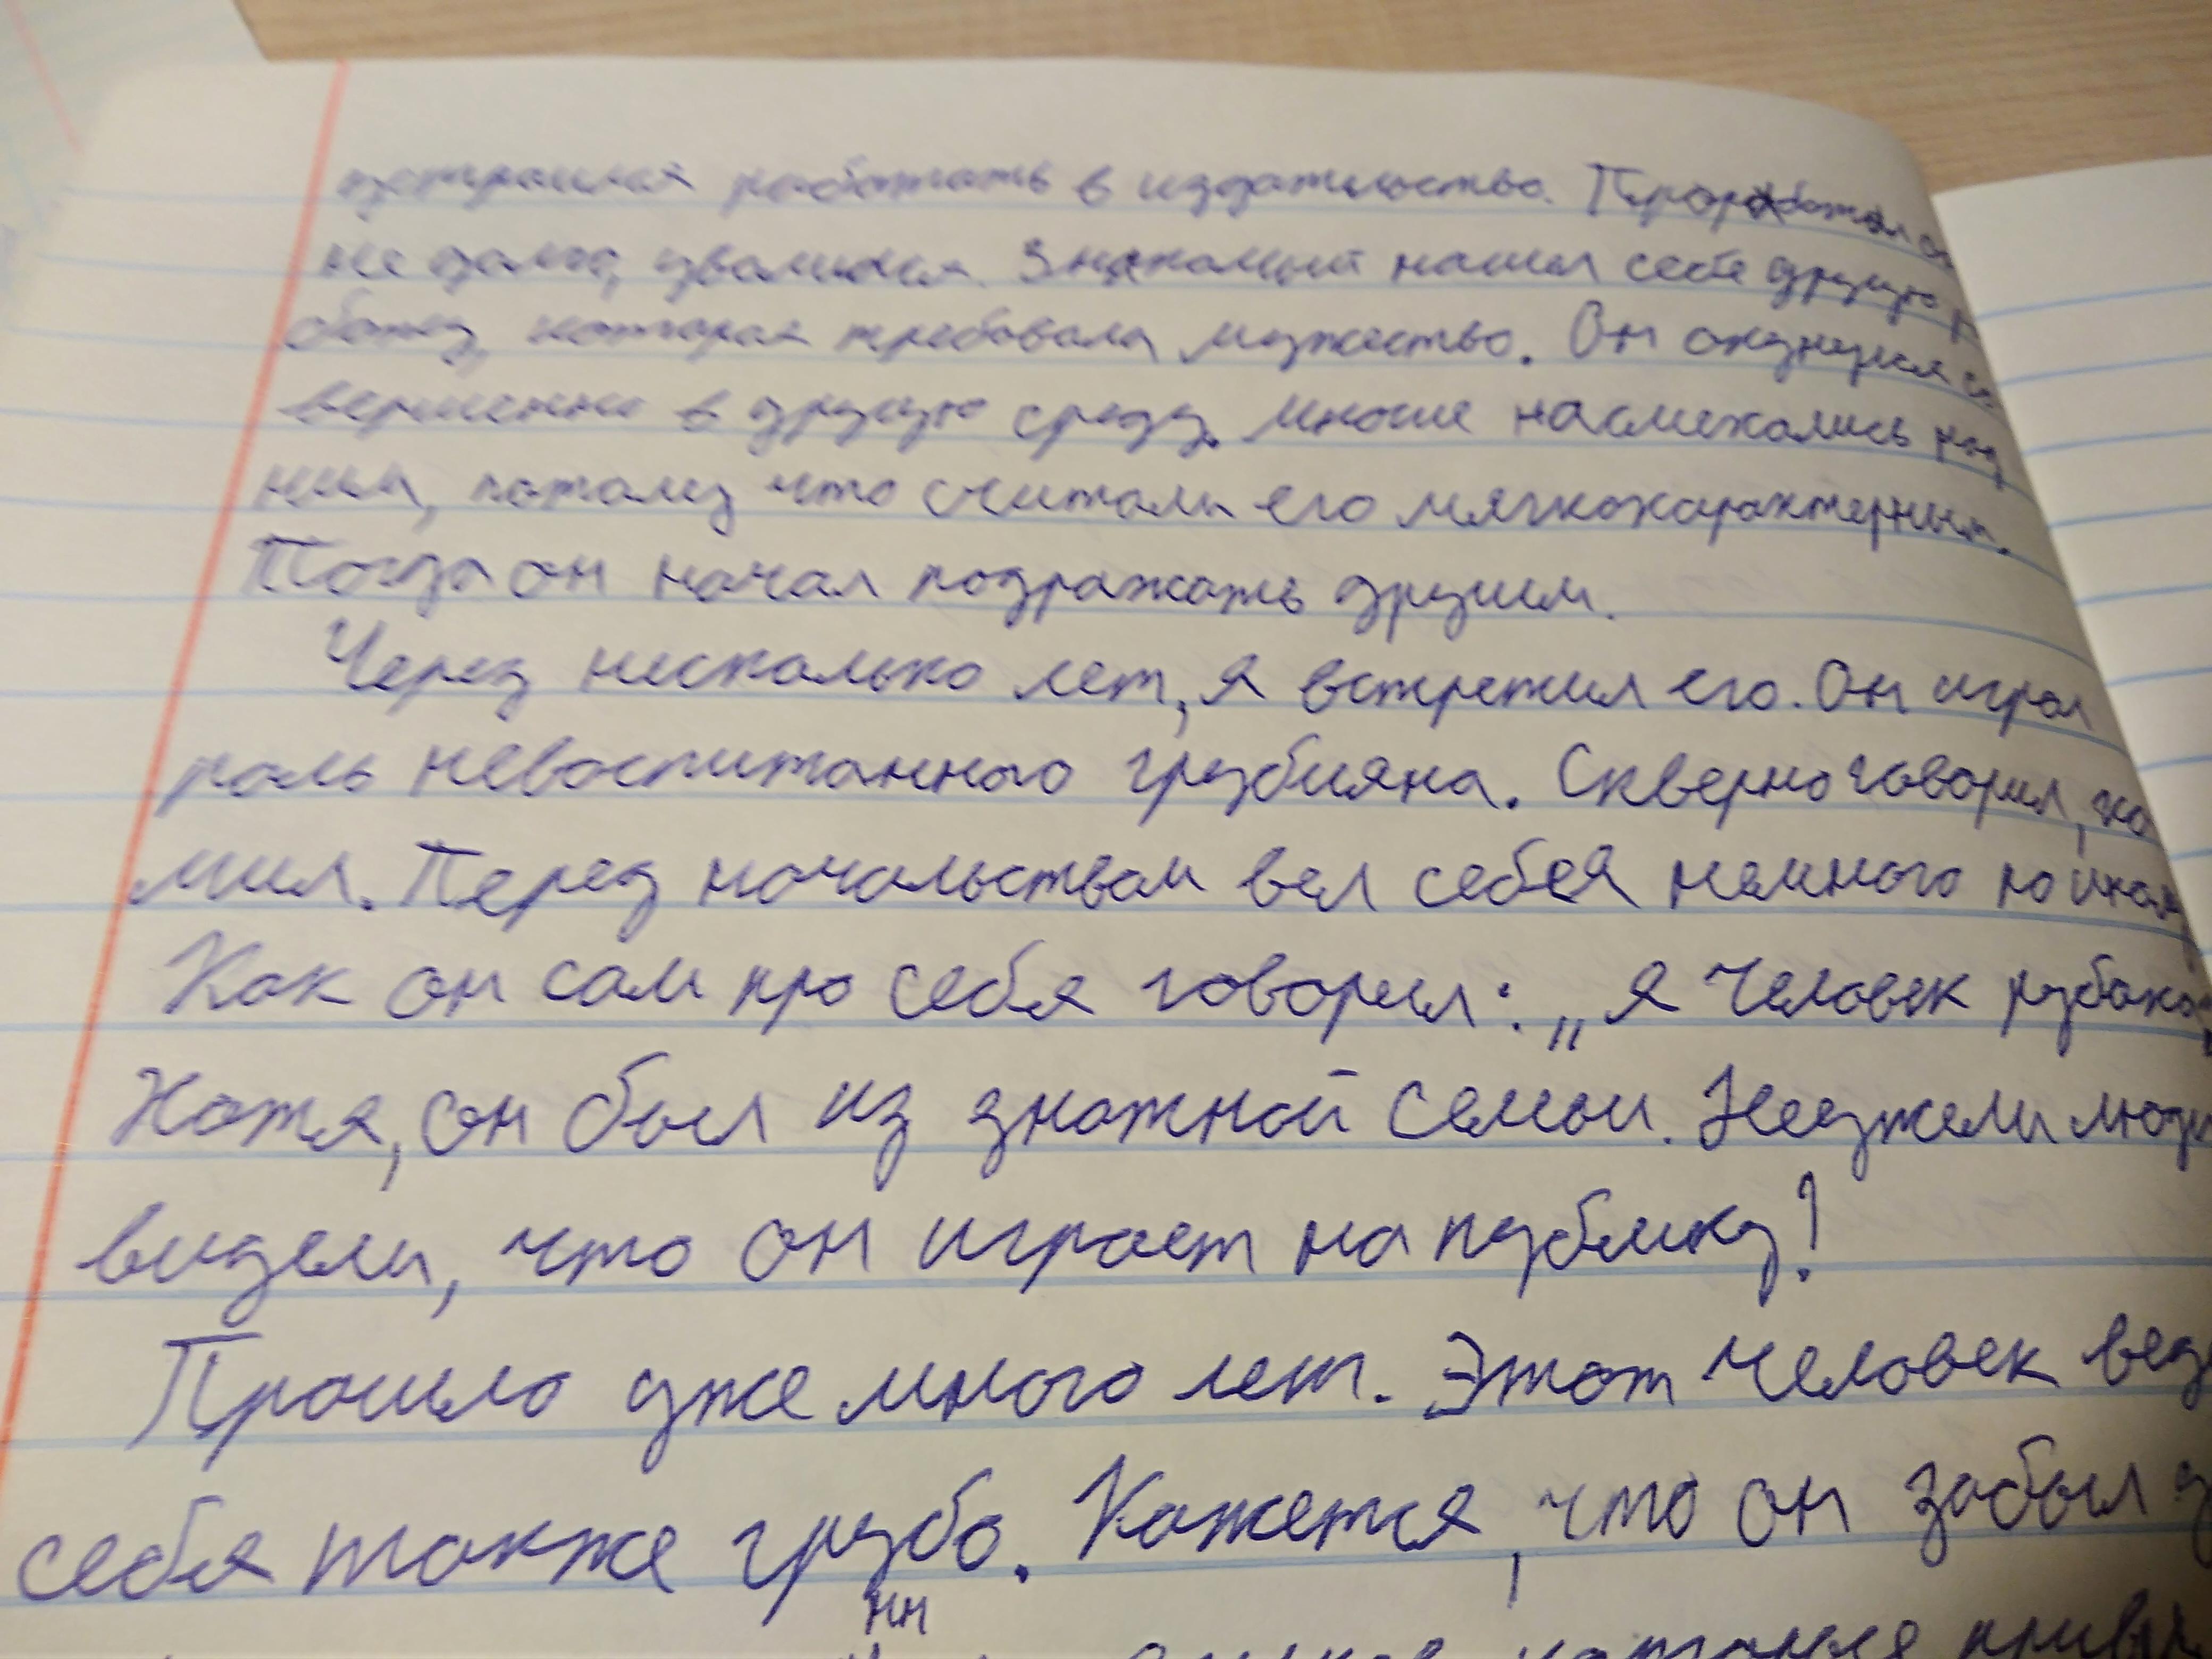 устроился работать в издательство. Проработал он
не долго, уволился. Знакомый нашел себе другую р
аботу, которая требовала мужество. Он окунулся со
вершенно в другую среду. Многие насмехались над
ним, потому что считали его мягкохарактерным.
Тогда он начал подражать другим.
Через несколько лет, я встретил его. Он играл
роль невоспитанного грубияна. Скверно говорил, ха
мил. Перед начальством вел себя немного по иному
Как он сам про себя говорил: „я человек рубака
Хотя, он был из знатной семьи. Неужели люди
видели, что он играет на публику!
Прошло уже много лет. Этот человек веде
себя также грубо. Кажется, что он забыл
нн
которые привы